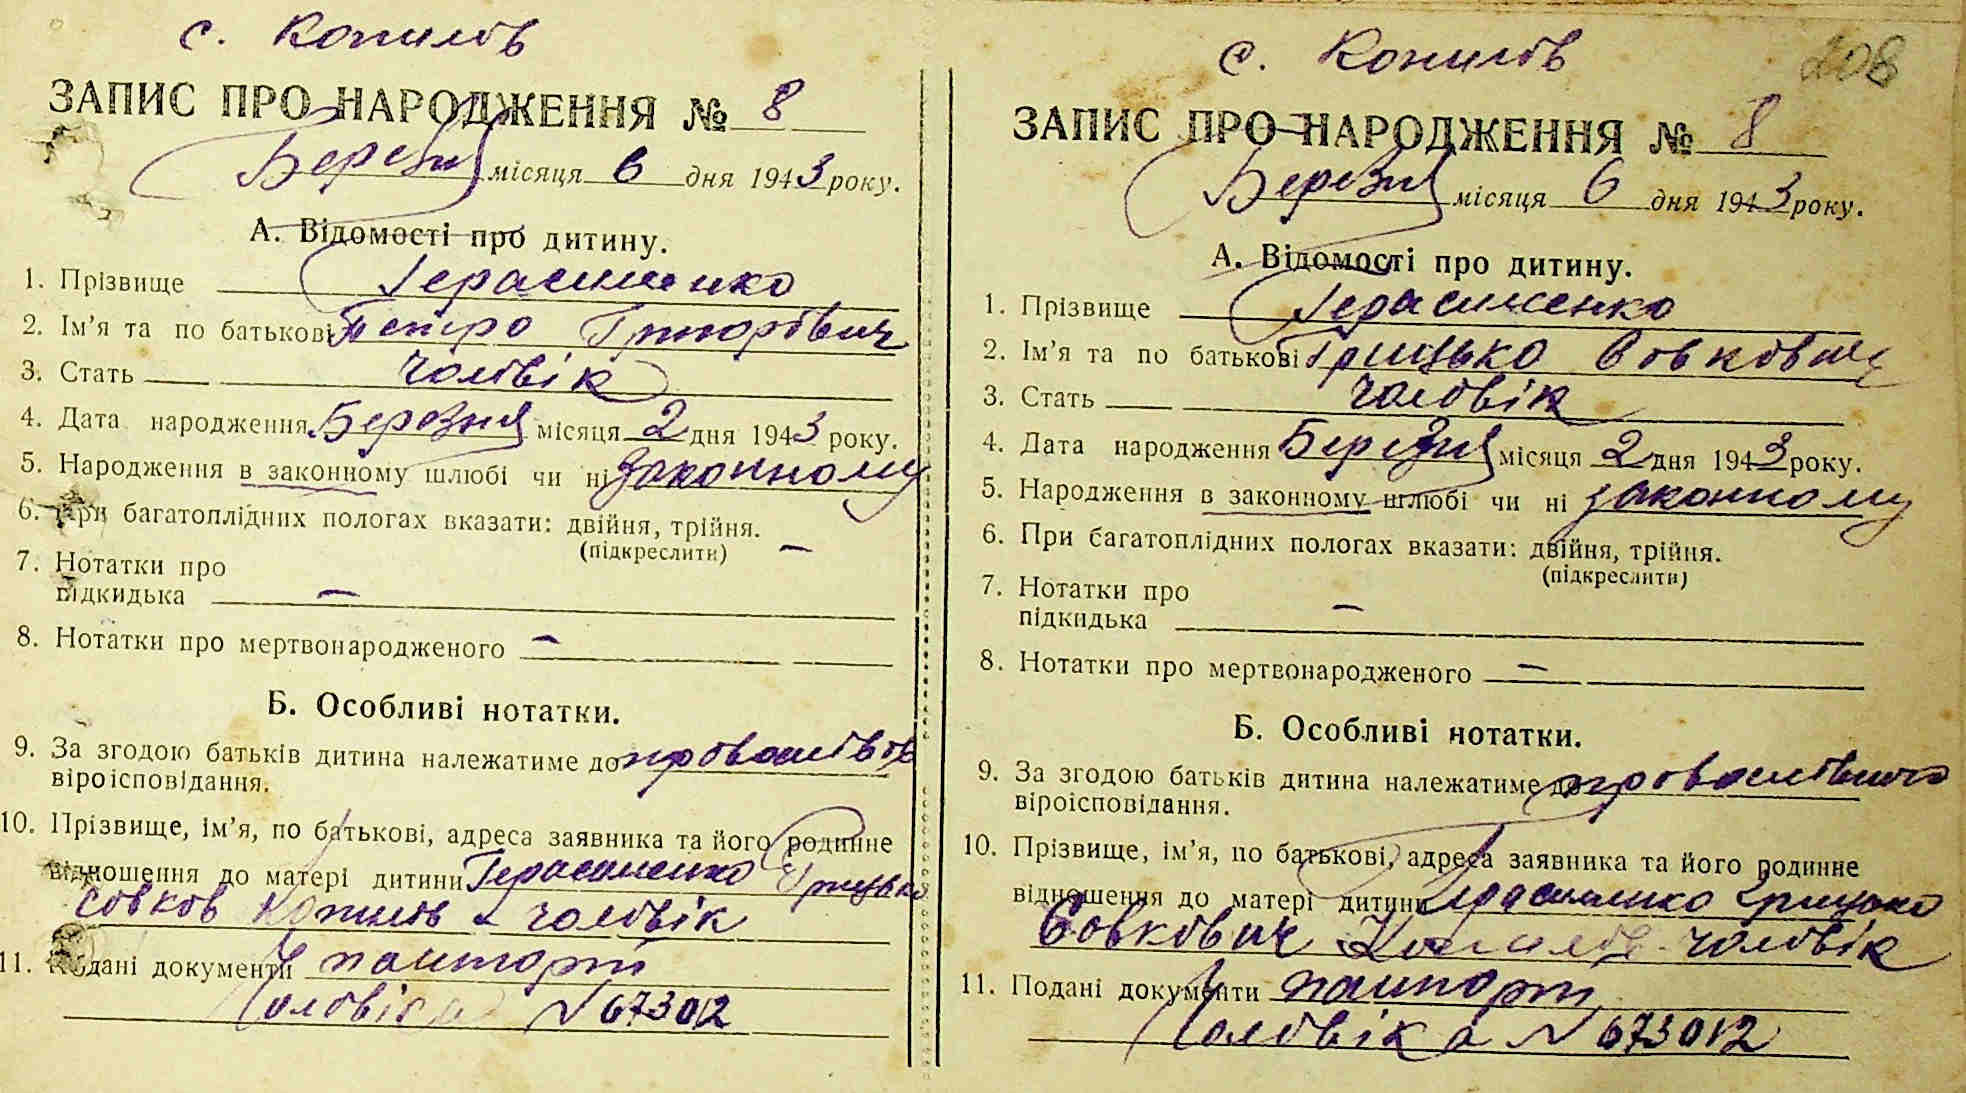 с. Копилів
ЗАПИС ПРО НАРОДЖЕННЯ № 8
Березня місяця 6 дня 1943 року.
А. Відомості про дитину.
1. Прізвище Герасименко
2. Ім'я та по батькові Петро Григорович
3. Стать чоловік
4. Дата народження Березня місяця 2 дня 1943 року.
5. Народження в законному шлюбі чи ні законному
6. При багатоплідних пологах вказати: двійня, трійня.
(підкреслити) —
7. Нотатки про
підкидька —
8. Нотатки про мертвонародженого —
Б. Особливі нотатки.
9. За згодою батьків дитина належатиме до
віроісповідання.
10. Прізвище, ім'я, по батькові, адреса заявника та його родинне
відношення до матері дитини Герасименко Грицько
Совков Копилів - чоловік
11. Подані документи пашпорт
Чоловіка № 673012
с. Копилів
208
ЗАПИС ПРО НАРОДЖЕННЯ № 8
Березня місяця 6 дня 1943 року.
А. Відомості про дитину.
1. Прізвище Герасименко
2. Ім'я та по батькові Грицько Совкович
3. Стать чоловік
4. Дата народження Березня місяця 2 дня 1943 року.
5. Народження в законному шлюбі чи ні законному
6. При багатоплідних пологах вказати: двійня, трійня.
(підкреслити)
7. Нотатки про
підкидька —
8. Нотатки про мертвонародженого —
Б. Особливі нотатки.
9. За згодою батьків дитина належатиме до
віроісповідання.
10. Прізвище, ім'я, по батькові, адреса заявника та його родинне
відношення до матері дитини Герасименко Грицько
Совкович Копилів - чоловік
11. Подані документи пашпорт
Чоловіка № 673012